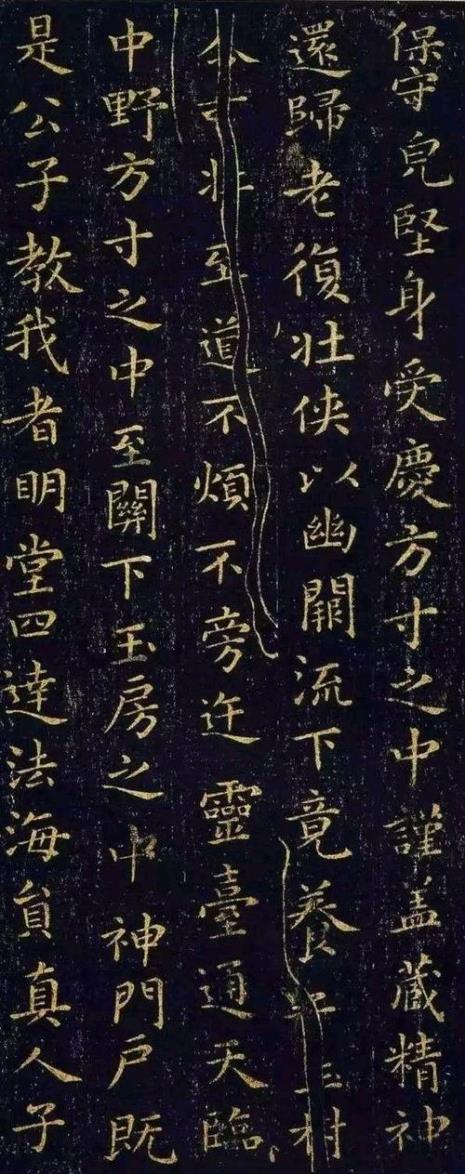 保守皃堅身受慶方寸之中謹盖藏精神
還歸老復壮侠以幽闕流下竟養子玉樹
令可壮至道不煩不旁迕靈臺通天臨
中野方寸之中至關下玉房之中神門戶既
是公子教我者眀堂四達法海員真人子